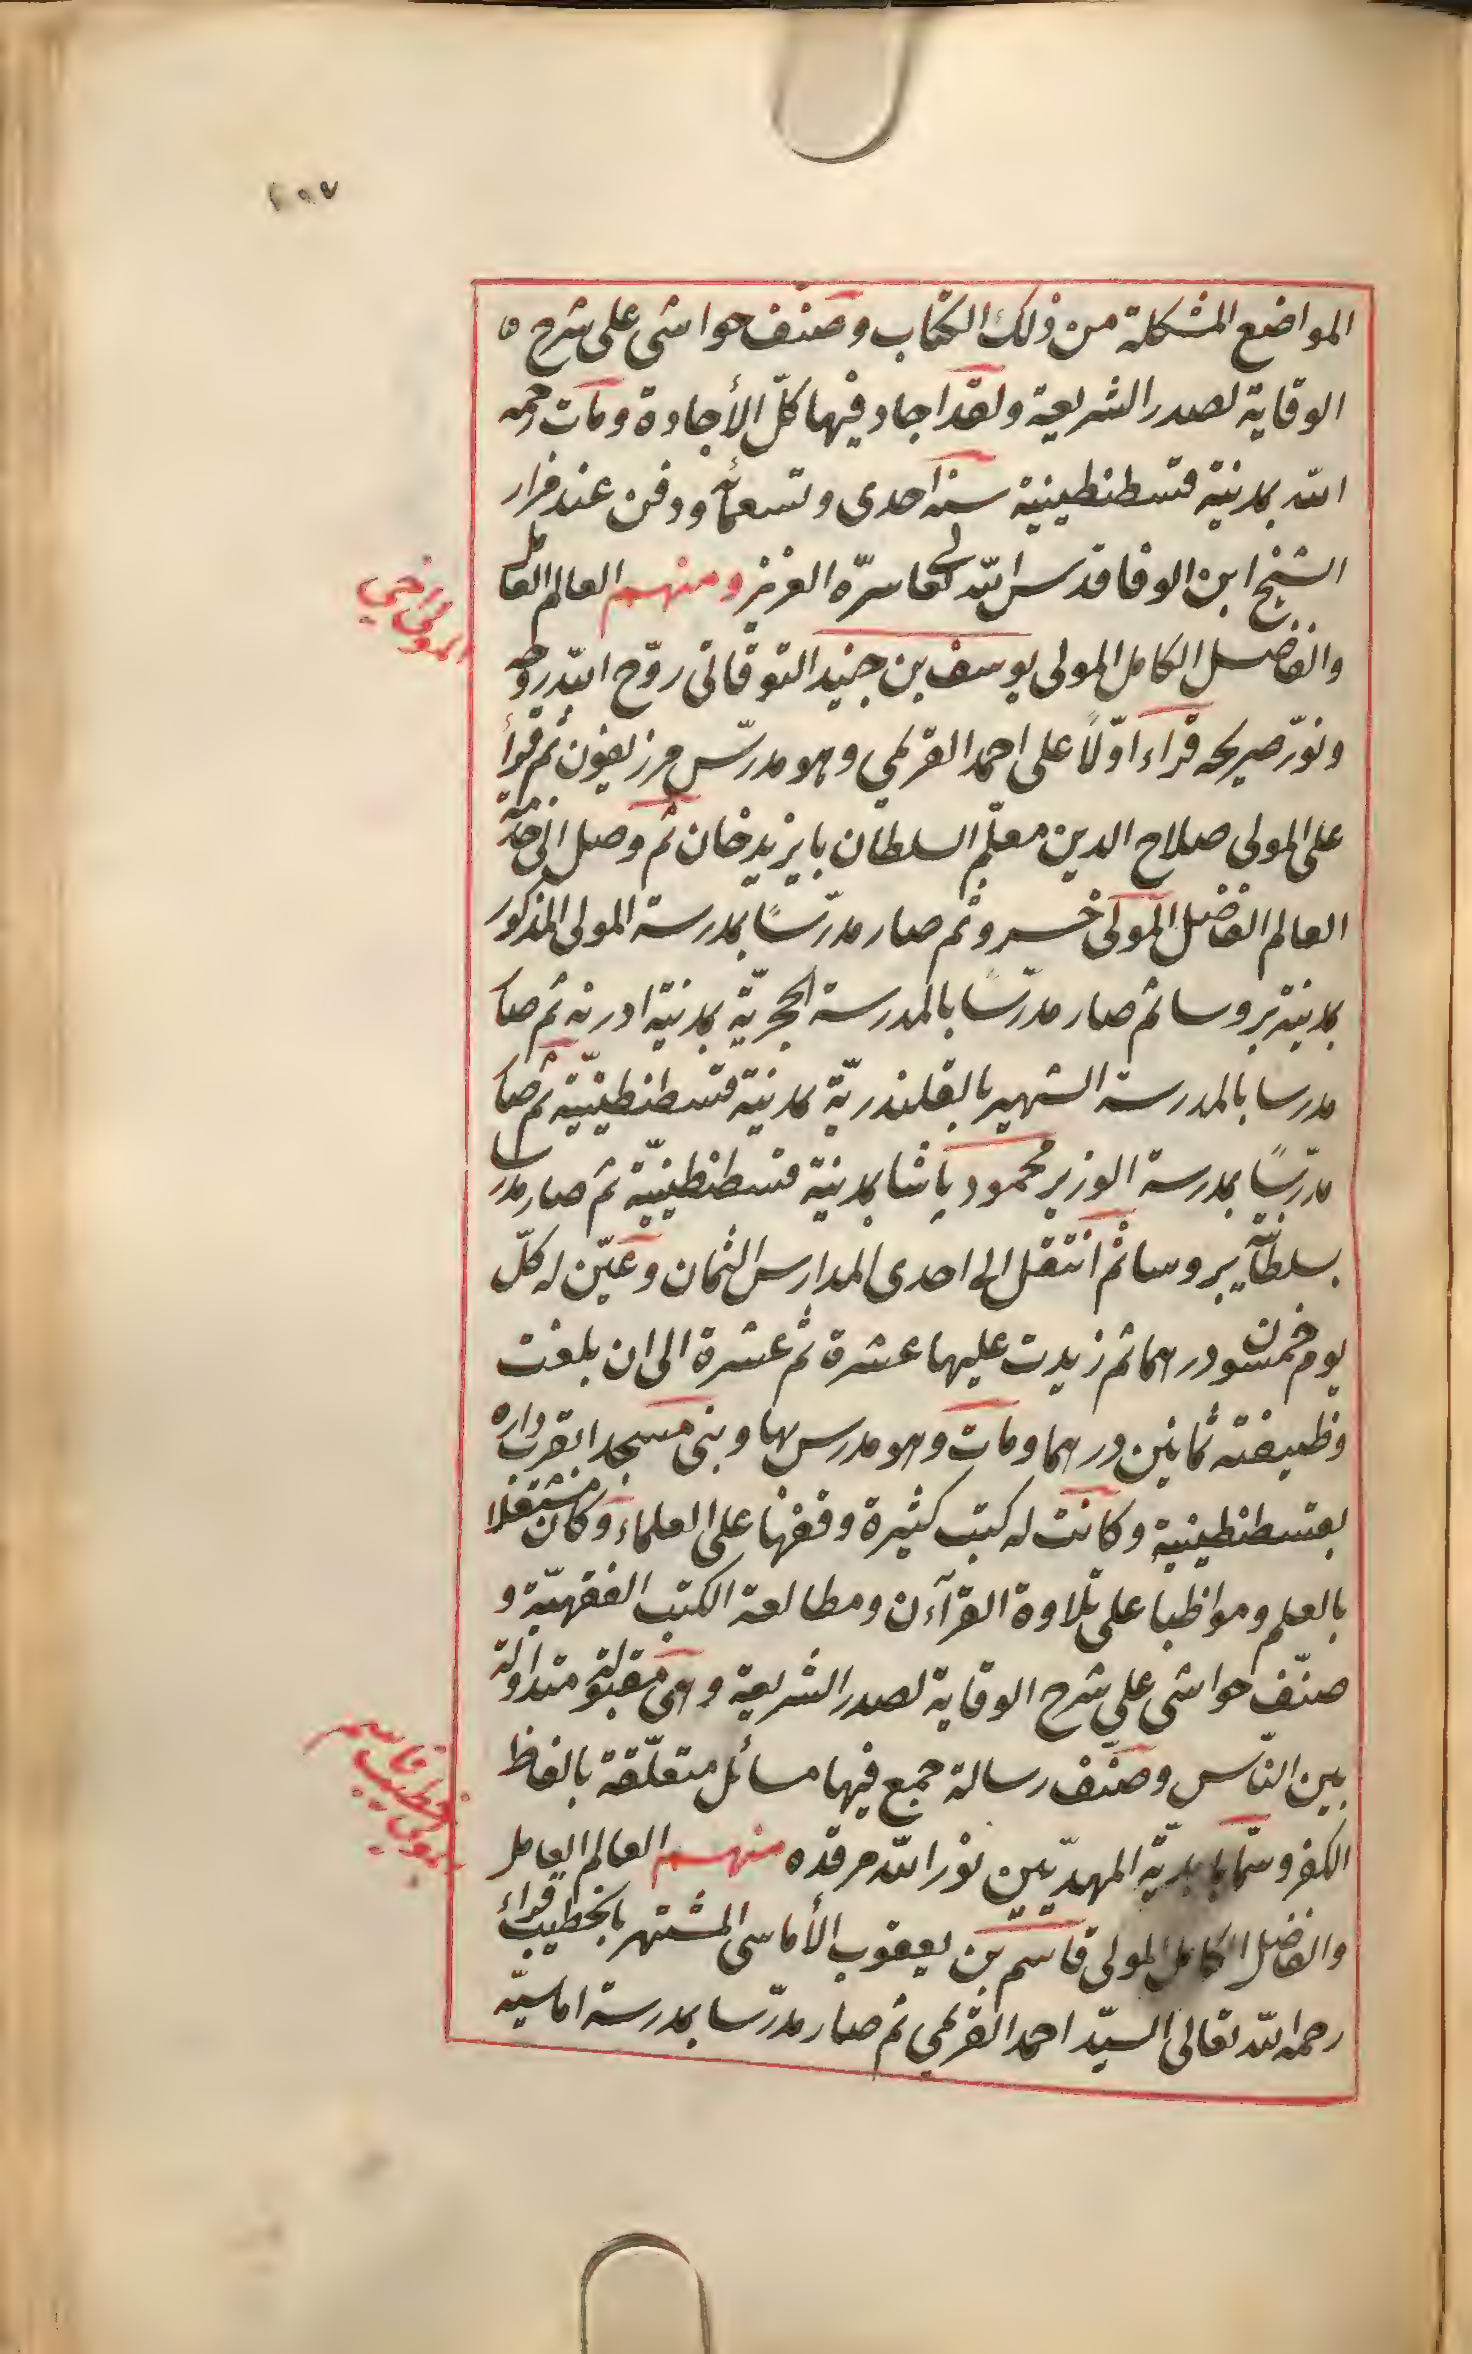 المواضع المشكلة من ذلك الكتاب وصنّف حواشى على شرح
الوقاية لصدر الشريعة ولقد اجاد فيها كلّ الأجادة ومات رحمه
الله بمدينة قسطنطينية سنة احدى وتسعمائة ودفن عند مزار
الشيخ ابن الوفا قدس الله تعالى سرّه العزيز ومنهم العالم العامل
والفاضل الكامل المولى يوسف بن جنيد التوقاتى روّح الله روحه
ونوّر ضريحه قراء اوّلاً على احمد القريمي وهو مدرّس مرزيفون ثم قرأ
على المولى صلاح الدين معلّم السلطان بايزيد خان ثم وصل الى خدمة
العالم الفاضل المولى خسرو ثم صار مدرّسًا بمدرسة المولى المذكور
بمدينة بروسا ثم صار مدرّسًا بالمدرسة الحجريّة بمدينة ادرنه ثم صار
مدرسا بالمدرسة الشهير بالقلندريّة بمدينة قسطنطينيّة ثم صار
مدرّسًا بمدرسة الوزير محمود پاشا بمدينة قسطنطينيّة ثم صار مدرسا
بسلطانية بروسا ثم انتقل الى احدى المدارس الثمان وعيّن له كلّ
يوم خمسون درهما ثم زيدت عليها عشرة ثم عشرة الى ان بلغت
وظيفته ثمانين درهما ومات وهو مدرس بها وبنى مسجدا بقرب داره
بقسطنطينية وكانت له كتب كثيرة وقفها على العلماء وكان مشتغلا
بالعلم ومواظبا على تلاوة القرآن ومطالعة الكتب الفقهيّة و
صنّف حواشى على شرح الوقاية لصدر الشريعة وهى مقبولة متداولة
بين النّاس وصنّف رسالة جمع فيها مسائل متعلّقة بالفاظ
الكفر وسمّاها بهديّة المهديّين نوّر الله مرقده منهم العالم العامل
والفاضل الكامل المولى قاسم بن يعقوب الأماسى المشتهر بالخطيب قراء
رحمه الله تعالى السيّد احمد القريمي ثم صار مدرّسا بمدرسة اماسيّه
المولى اخي
المولى خطيب قاسم